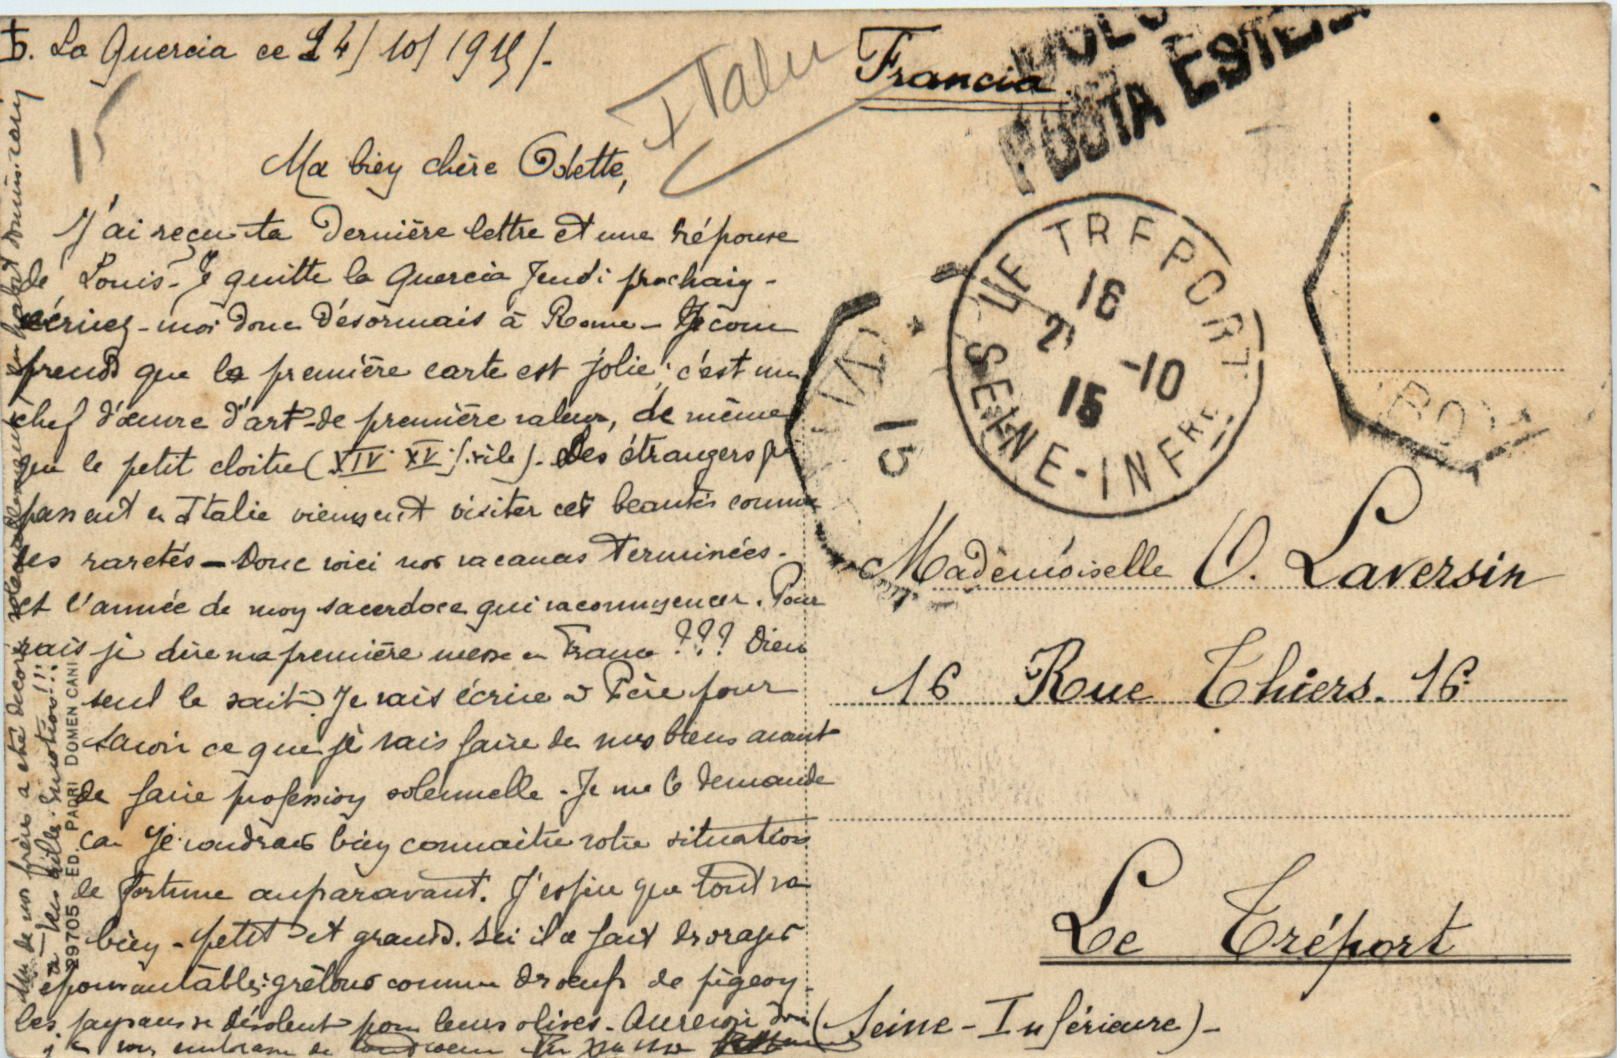 La Quercia ce 24/10/1915/-
15
Italie
Ma bien chère Odette,
J'ai reçu ta dernière lettre et une réponse
de Louis. Je quitte la Quercia Jeudi prochain -
écrivez-moi donc désormais à Rome - Je com
prends que la première carte est jolie; c'est un
chef d'œuvre d'art de première valeur, de même
que le petit cloitre (XIV. XV. siècle). Les étrangers qui
passent en Italie viennent visiter ces beautés comme
des raretés - Donc voici nos vacances terminées -
et l'année de mon sacerdoce qui va commencer. Pour
rais je dire ma première messe en France ??? Dieu
seul le sait. Je vais écrire à Père pour
savoir ce que je vais faire de mes biens avant
de faire profession solennelle - Je me le demande
car je voudrais bien connaitre votre situation
de fortune auparavant. J'espère que tout va
bien - petit et grands. Ici il a fait des orages
épouvantables: grêlons comme des œufs de pigeon.
les paysans se désolent pour leurs olives - Au revoir donc
je vous embrasse de tout cœur
Un de nos frères a été décoré solennellement en habit dominicain
29705 ED. PADRI DOMENICANI
Francia
POSTA ESTERA
LE TREPORT
16
21 -10
15
SEINE-INFRE
15
Mademoiselle O. Laversin
16 Rue Thiers. 16
Le Tréport
(Seine-Inférieure)-